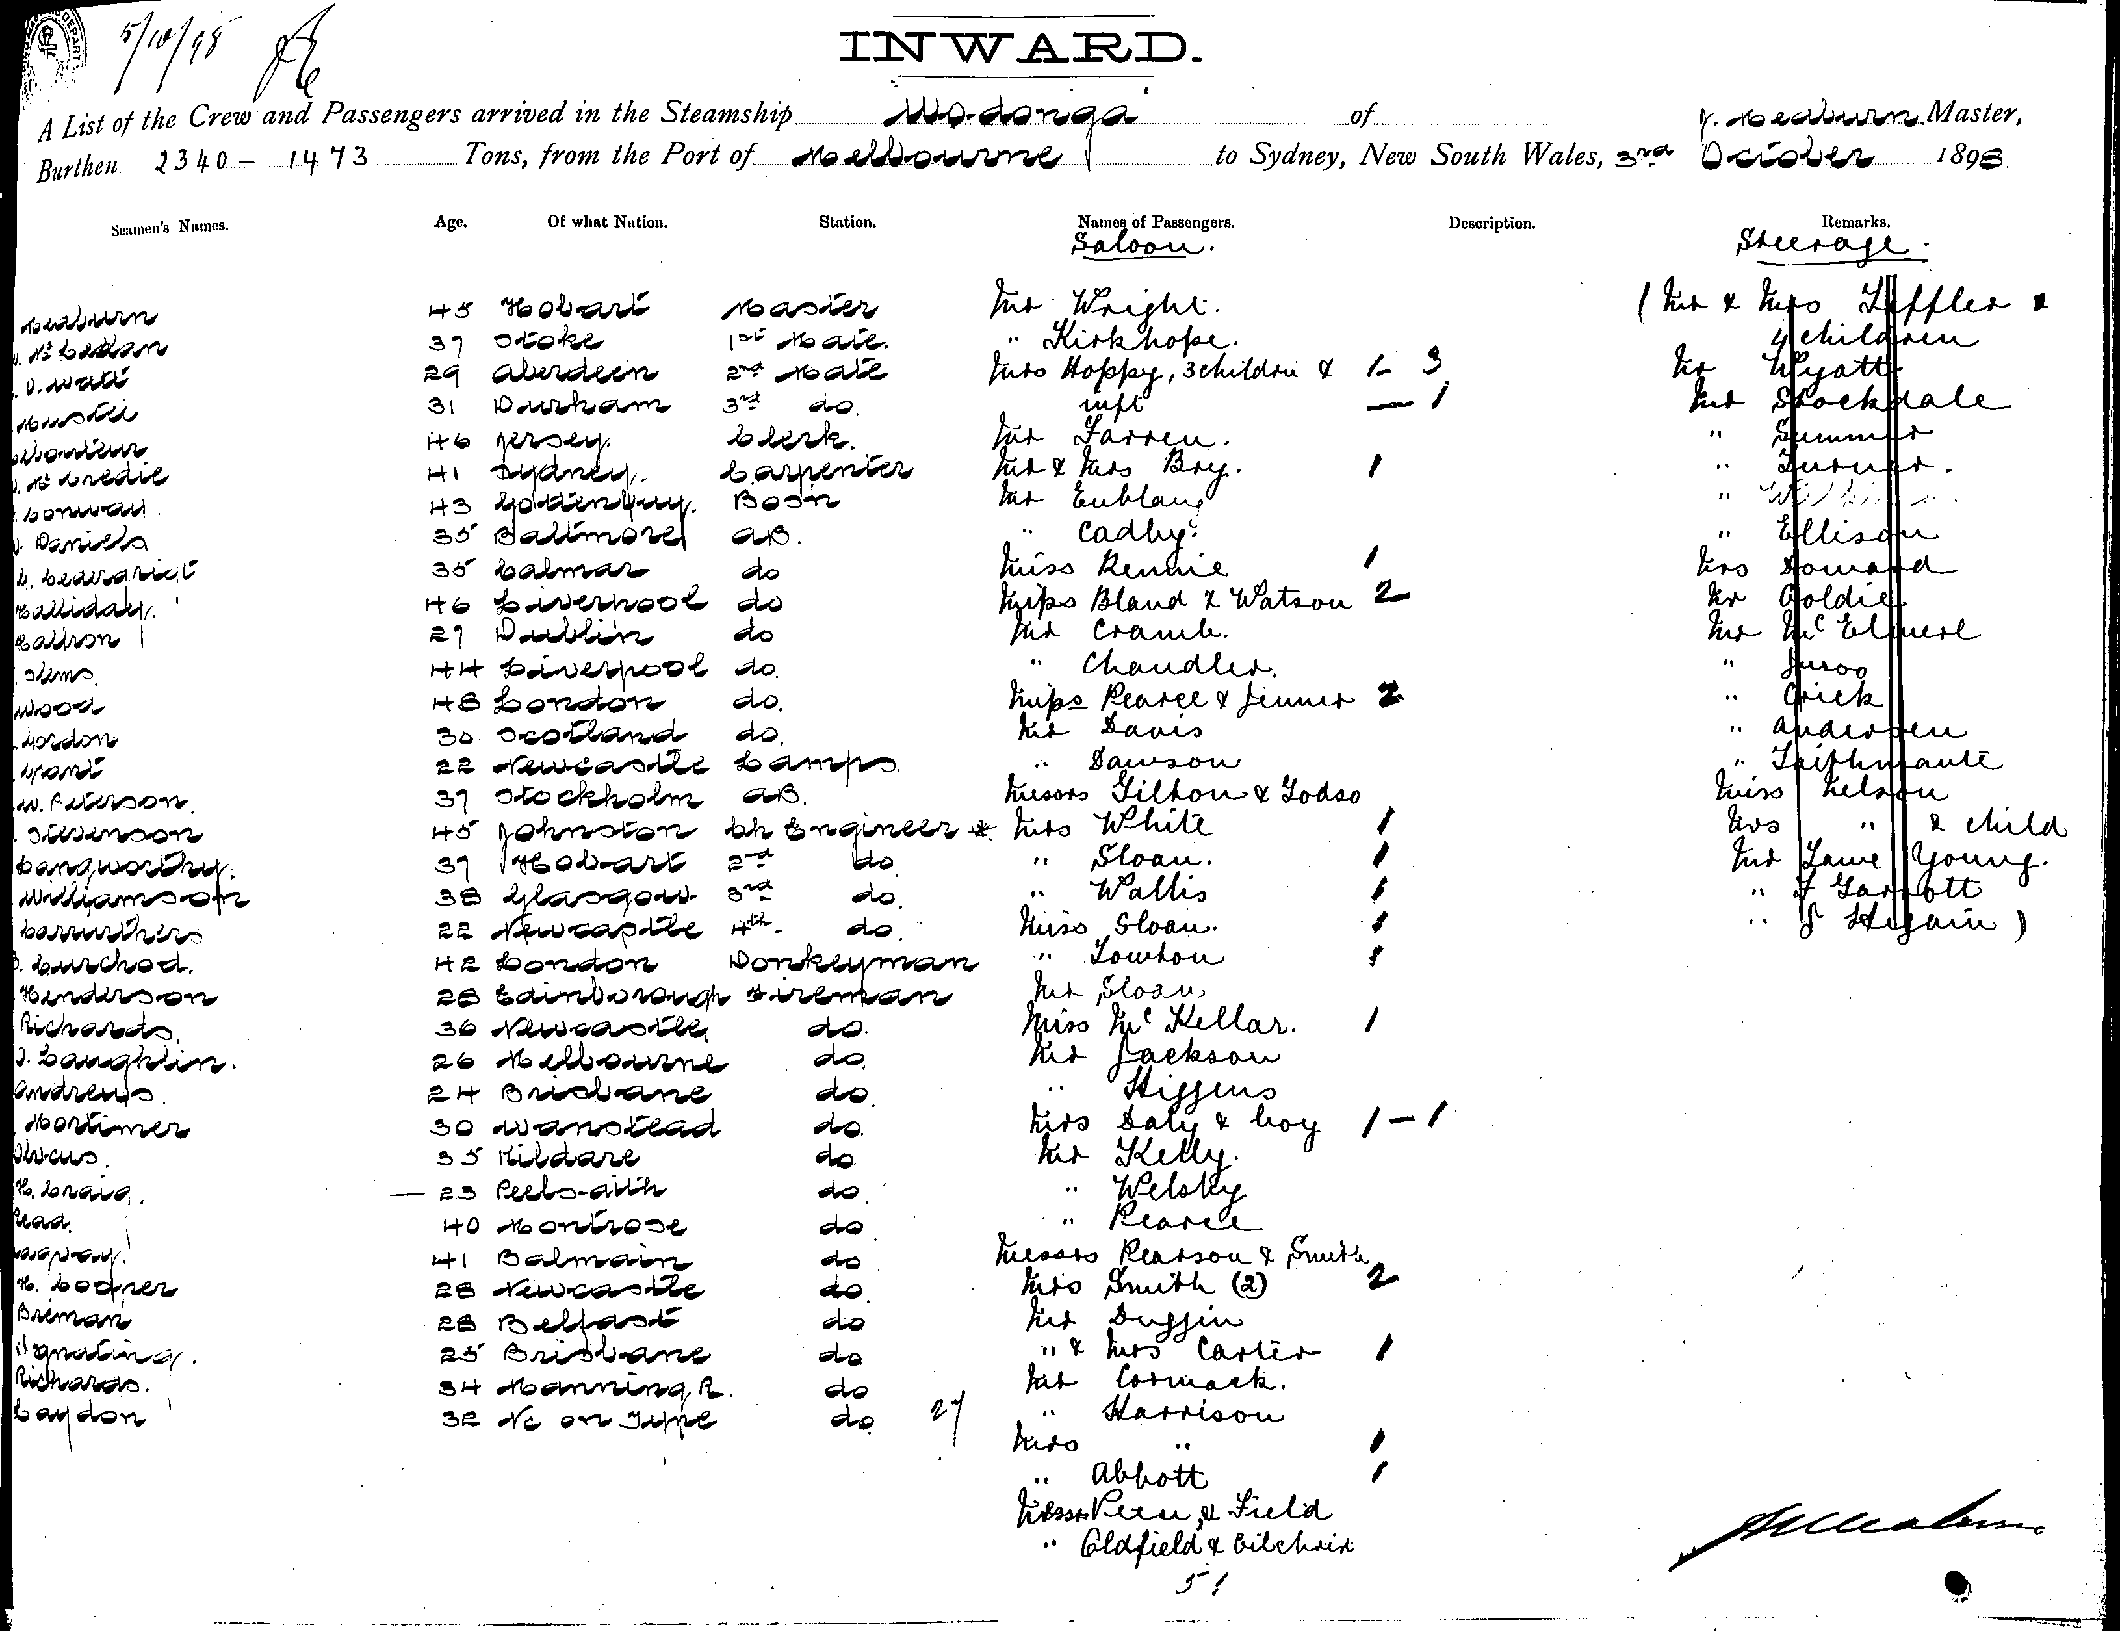 5/10/98
INWARD.
A List of the Crew and Passengers arrived in the Steamship Wodonga of J. Meaburn Master,
Burthen 2340 - 1473 Tons, from the Port of Melbourne to Sydney, New South Wales, 3rd October 1898
Seamen's Names. Age. Of what Nation. Station. Names of Passengers. Description. Remarks.
Saloon. Steerage.
Meaburn 45 Hobart Master Mr Wright. (Mr & Mrs Leffler &
37 Stoke 1st Mate. " Kirkhope. 4 children
Watt 29 Aberdeen 2nd Mate Mrs Hoppy, 3 children & 1- 3 Mr Wyatt
31 Durham 3rd do. inft — 1 Mr Stockdale
46 Jersey. Clerk. Mr Farren. " Summer
McCredie 41 Sydney. Carpenter Mr & Mrs Bry. 1 " Turner.
Conway. 43 Bosn Mr "
Daniels 35 Baltimore AB. " Cadby. " Ellison
35 Calmar do Miss Rennie 1 Mrs
Halliday. 46 Liverpool do Misses Bland & Watson 2 Mr Goldie
27 Dublin do Mr Cramb. Mr
44 Liverpool do. " Chandler. "
Wood 48 London do. Misses Pearce & Jenner 2 " Crick
Gordon 30 Scotland do. Mr Davis " Andersen
Grant 22 Newcastle Lamps " Dawson "
W. Peterson. 37 Stockholm AB. Messrs Gilhon & Godso Miss Nelson
Stevenson 45 Johnston Ch Engineer * Mrs White 1 Mrs " & child
Langworthy. 37 Hobart 2nd do. " Sloan. 1 Mr Young.
Williamson 38 Glasgow 3rd do. " Wallis 1 "
Carruthers 22 Newcastle 4th. do. Miss Sloan. 1 "
42 London Donkeyman " Lowton 1
Henderson 28 Edinborough Fireman Mr Sloan
Richards. 36 Newcastle do. Miss McKellar. 1
Laughlin. 26 Melbourne do. Mr Jackson
Andrews. 24 Brisbane do. " Higgens
Mortimer 30 Wanstead do. Mrs Daly & boy 1 - 1
35 Kildare do Mr Kelly.
H. Craig. — 23 do. " Welsby
Read. 40 Montrose do " Pearce
41 Balmain do Messrs Pearson & Smith
H. Cooper 28 Newcastle do. Mrs Smith (2) 2
28 Belfast do Mr Duggin
25 Brisbane do " & Mrs Carter 1
Richards. 34 Manning R. do Mr Cormack.
Laydon 32 Nc on Tyne do. 27 " Harrison
Mrs " 1
" Abbott 1
Messrs & Field
" Oldfield & Gilchrist
51